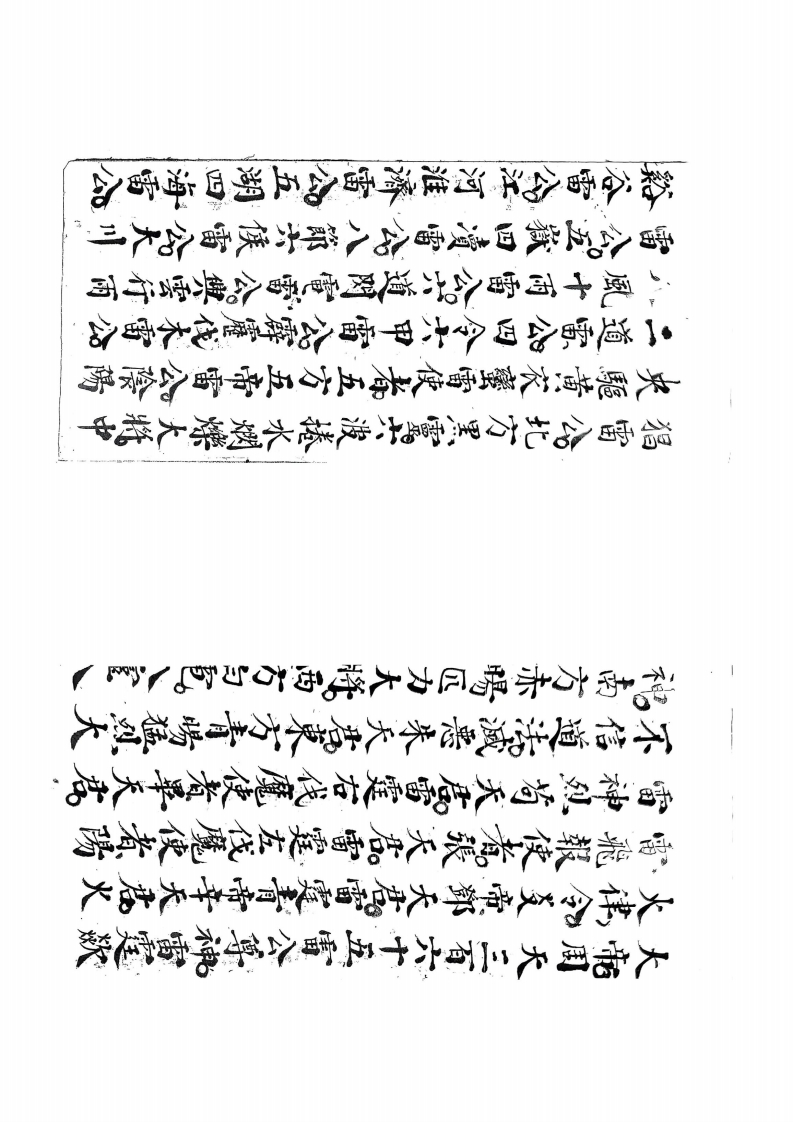 大帝周天三百六十五雷公尊神。雷霆欻
火律令。炎帝鄧天君。雷霆青帝辛天君。火
雷飛報使者。張天君。雷霆左伐魔使者陽
雷神烈苟天君。雷霆右伐魔使者畢天君。
不信道法。滅惡朱天君。東方青賜猛烈大
神。南方赤賜叵力大將。西方白電。八
猖雷公。北方黑靈。六波捲水燜爍大將。中
央驅黃衣蠻雷使者。五方五帝雷公。陰陽
二道雷公。四令六甲雷公。霹靂伐木雷公
風十雨雷公。六道閃電雷公。興雲行雨
雷公。五嶽四瀆雷公。八節六候雷公。大川
谿谷雷公。江河淮濟雷公。五湖四海雷公。